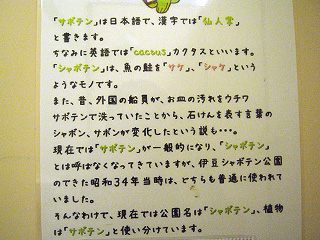 「サボテン」は日本語で、漢字では「仙人掌」
と書きます。
ちなみに英語では「cactus」カクタスといいます。
「シャボテン」は、魚の鮭を「サケ」、「シャケ」という
ようなモノです。
また、昔、外国の船員が、お皿の汚れをウチワ
サボテンで洗っていたことから、石けんを表す言葉の
シャボン、サボンが変化したという説も・・・。
現在では「サボテン」が一般的になり、「シャボテン」
とは呼ばなくなってきていますが、伊豆シャボテン公園
のできた昭和34年当時は、どちらも普通に使われて
いました。
そんなわけで、現在では公園名は「シャボテン」、植物
は「サボテン」と使い分けています。